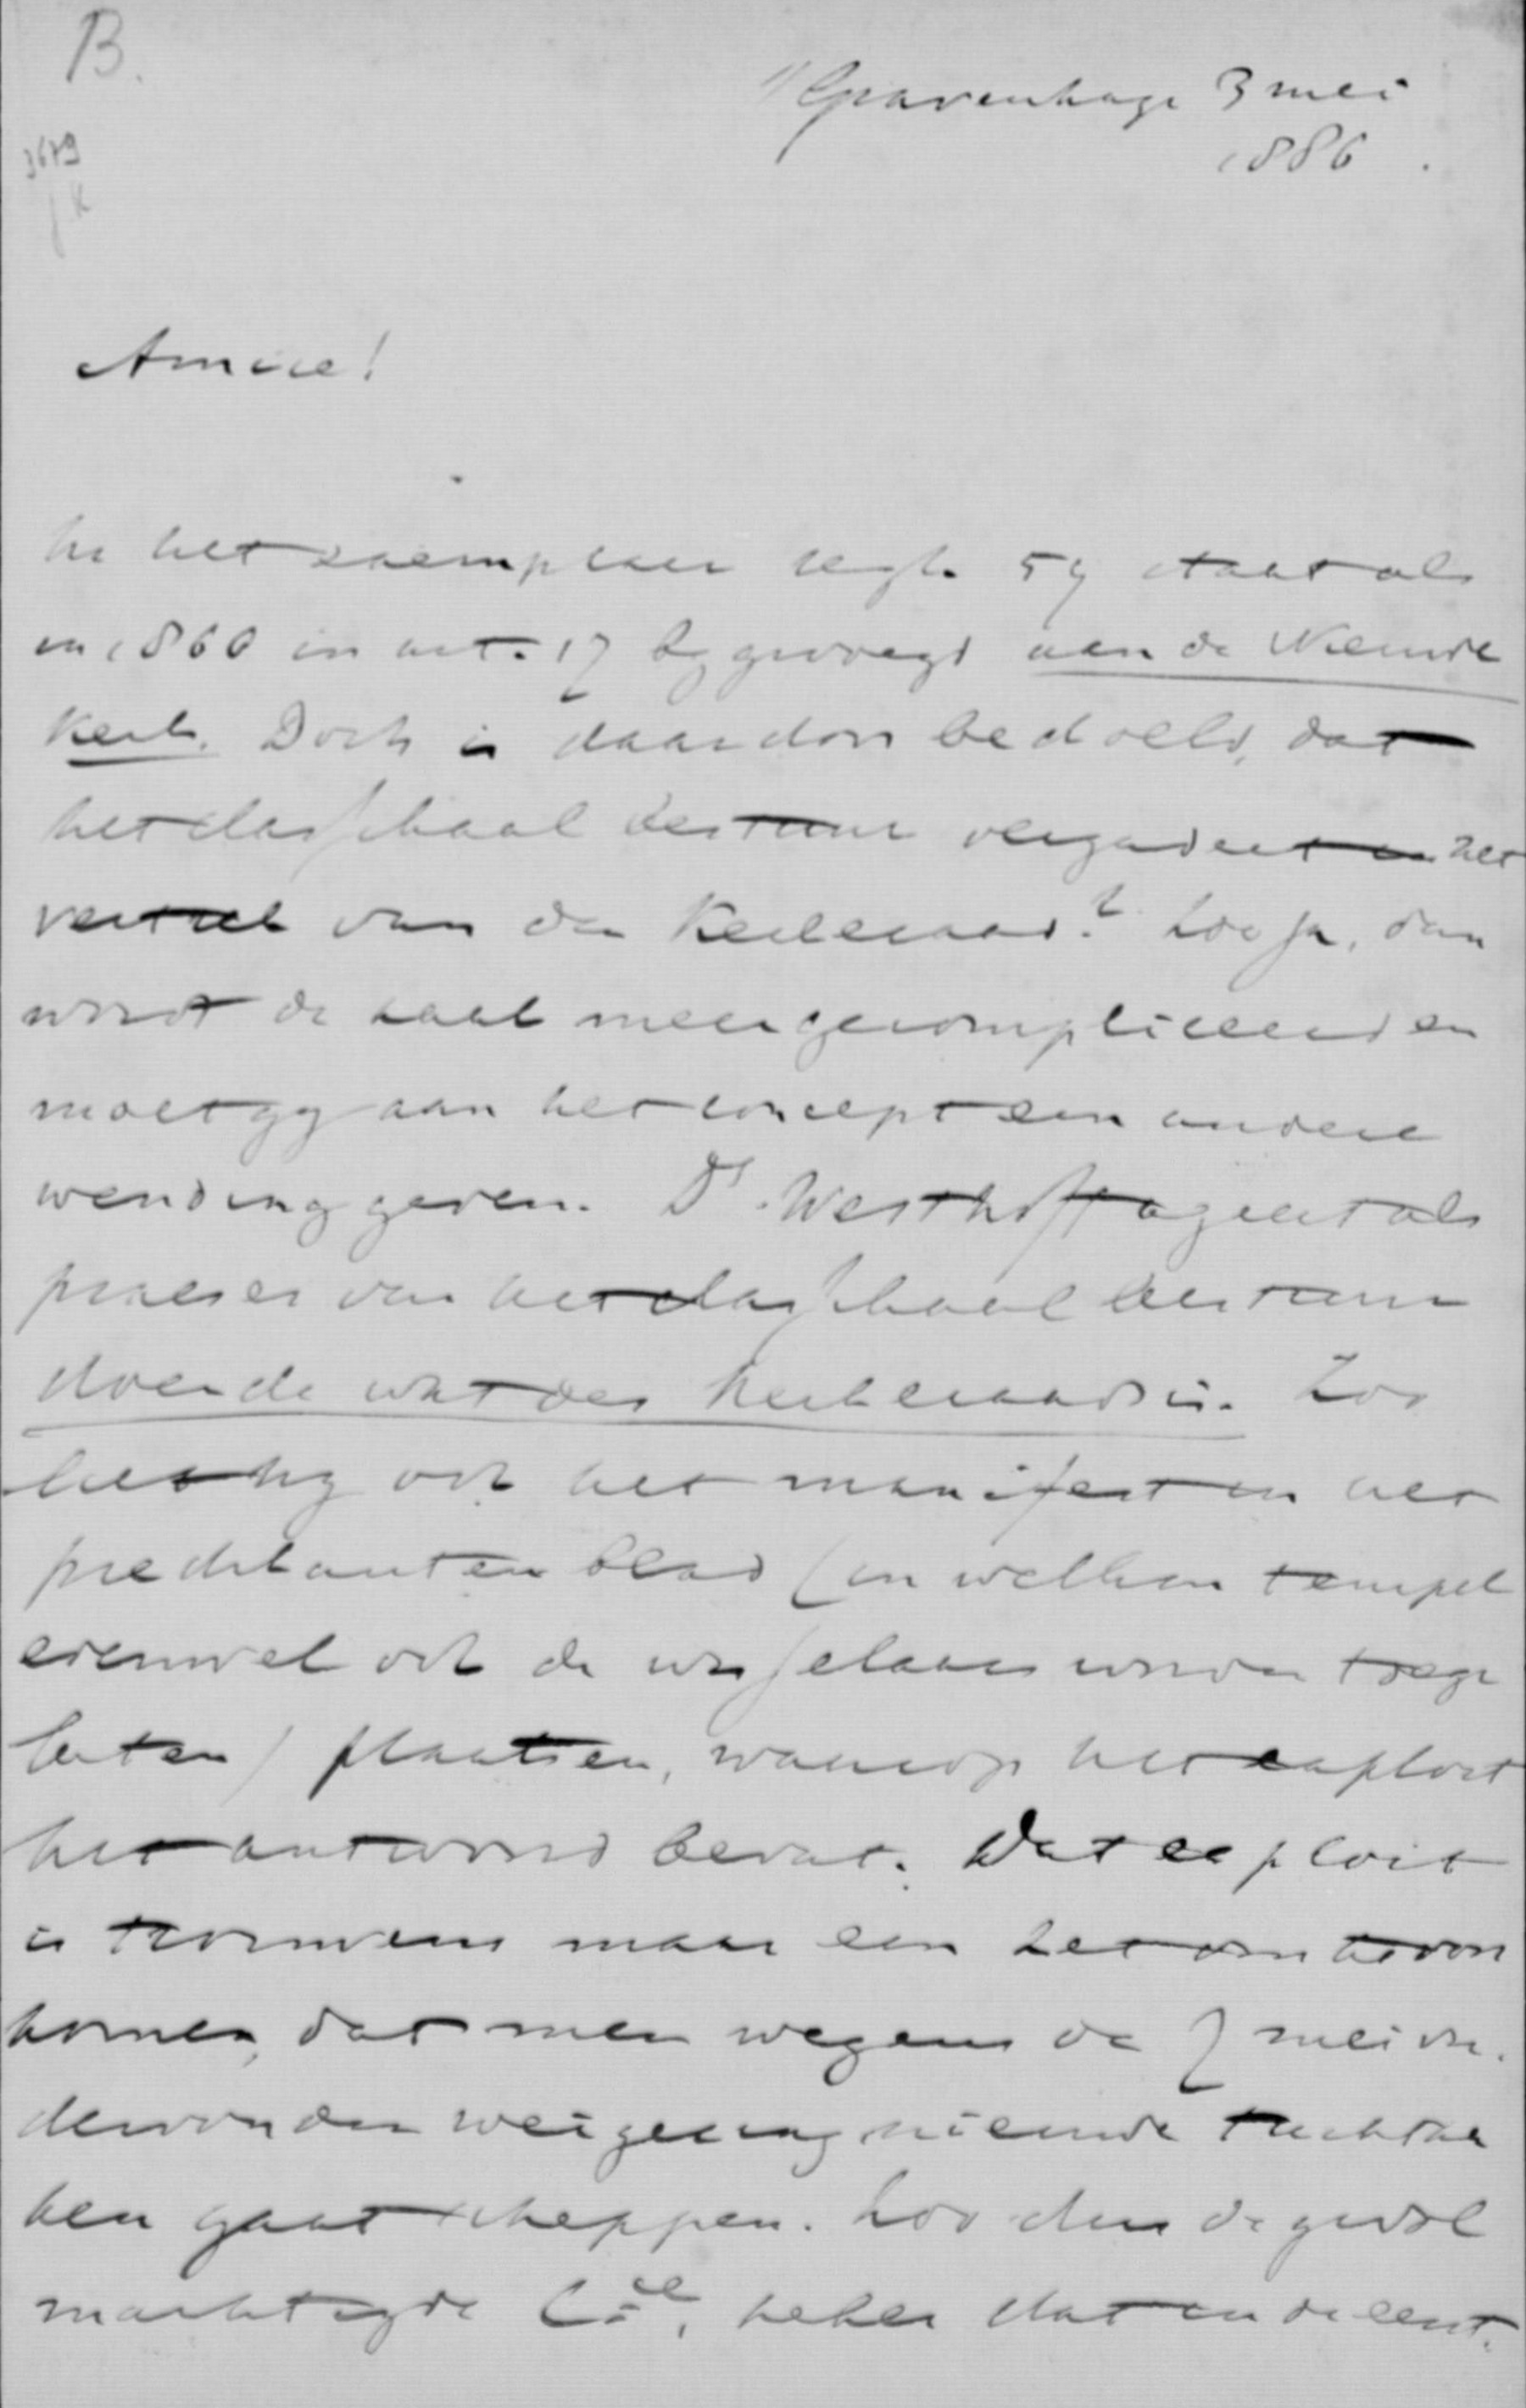 B.
's Gravenhage 3 mei
1886.
3679
JK
Amice!
In het exemplaar regl. 59 staat als
in 1860 in art. 17 bygevoegd aan de Nieuwe
Kerk. Doch is daardoor bedoeld, dat
het classikaal bestuur vergadert in het
vertrek van den Kerkeraad? Zoo ja, dan
wordt de zaak meer gecompliceerd en
moet gy aan het concept een andere
wending geven. Ds. Westhoff ageert als
praeses van het classikaal bestuur
doende wat des kerkeraads is. Zoo
liet hy ook het manifest in het
predikantenblad (in welken tempel
evenwel ook de wisselaars worden toege
laten) plaatsen, waarop het exploit
het antwoord bevat. Dat exploit
is trouwens maar een zet om te voor
komen, dat men wegens de 7 mei on-
dervonden weigering nieuwe trechtza
ken gaat scheppen. Zoo den de gevol
machtigde Cie, zeker dat in de eerst.